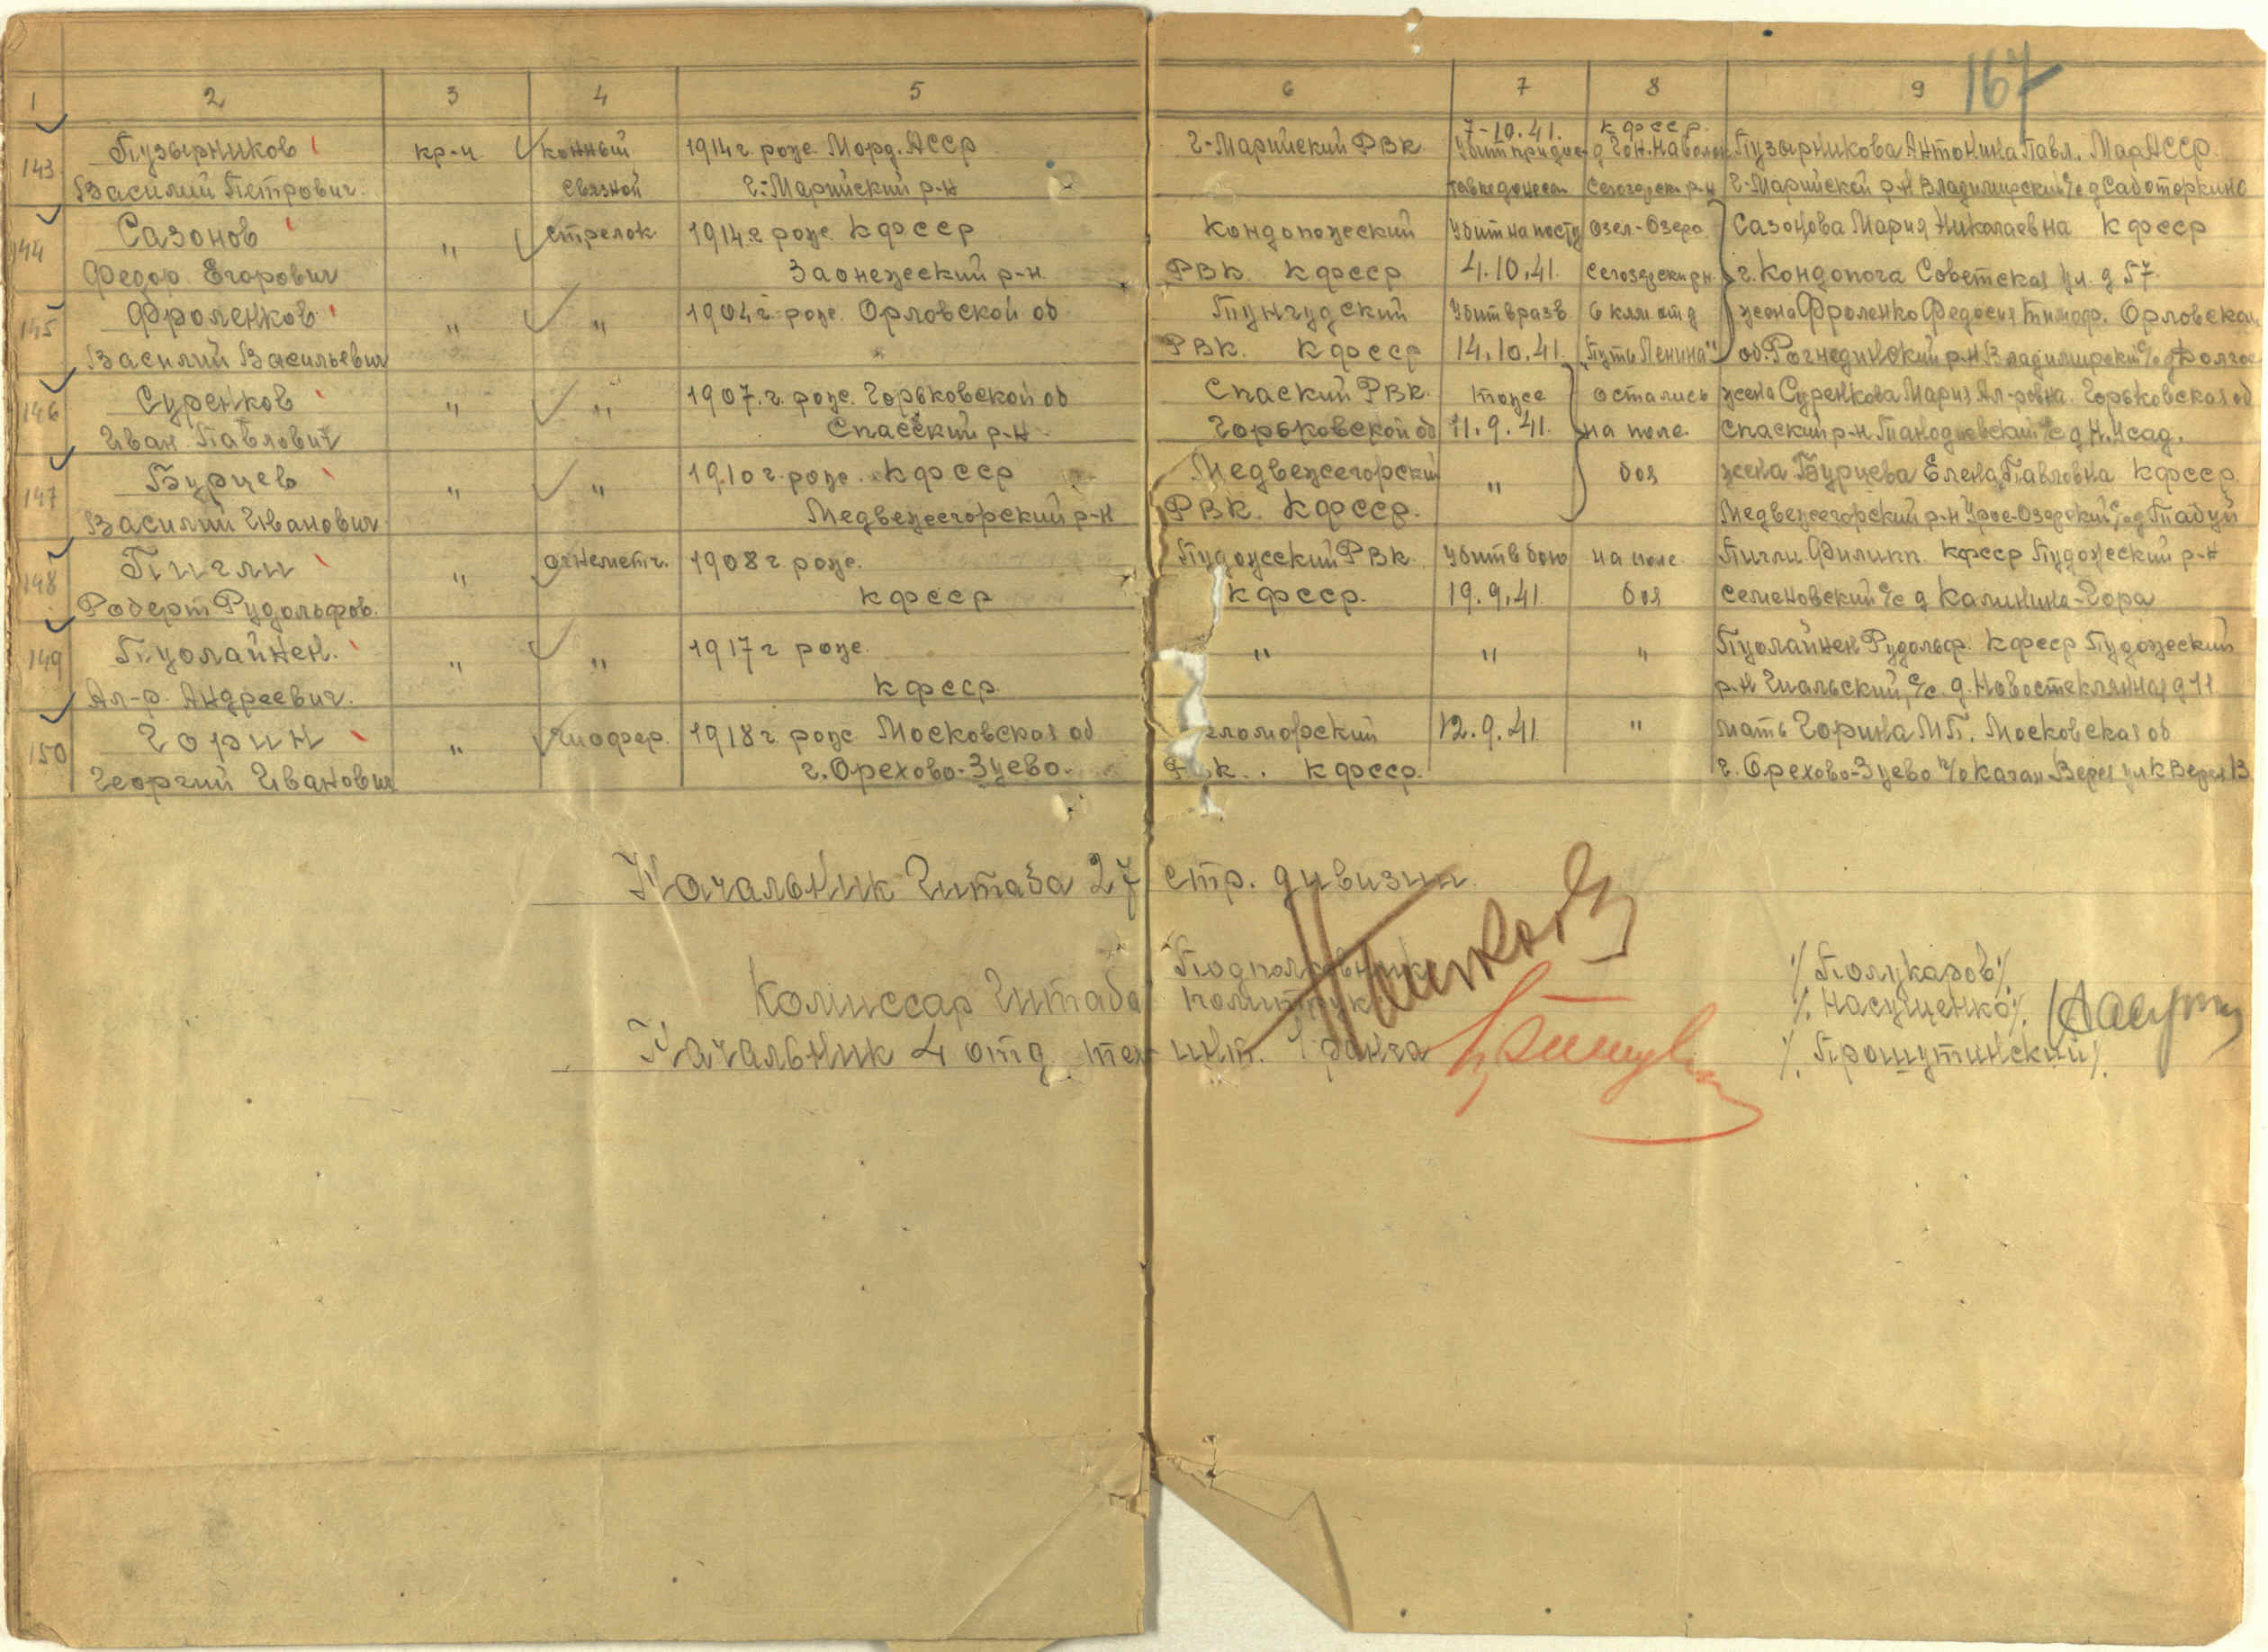 167
1 2 3 4 5 6 7 8 9
143 Пузырников кр-ц конный 1914 г. рож. Морд. АССР Г-Марийский РВК 7-10.41. Убит при дос- КФССР. д Гон. Наволок Пузырникова Антонина Павл. МарАССР
Василий Петрович. связной Г-Марийский р-н тавке донесен Сегозерск р-н Г-Марийский р-н Владимирский с/с д Саботеркино
144 Сазонов " стрелок 1914 г. рож. КФССР Кондопожский Убит на посту Озел-Озеро Сазонова Мария Николаевна КФССР
Федор Егорович Заонежский р-н РВК КФССР 4.10.41. Сегозерский р-н г. Кондопога Советская ул. д 57.
145 Фроленков " " 1904 г. рож. Орловской об Тунгудский Убит в разв 6 клм от д жена Фроленко Федосия Тимоф. Орловская
Василий Васильевич РВК. КФССР 14.10.41. "Путь Ленина" об. Рогнединский р-н Владимирский с/с д
146 Суренков " " 1907. г. рож. Горьковской об Спаский РВК. тоже остались жена Суренкова Мария Ал-ровна. Горьковская об
Иван Павлович Спасский р-н Горьковской об 11.9.41. на поле Спаский р-н с/с д Н. Усад.
147 Бурцев " " 1910 г. рож. КФССР Медвежегорский " боя жена Бурцева Елена Павловна КФССР
Василий Иванович Медвежегорский р-н РВК. КФССР. Медвежегорский р-н с/с д
148 Пигли " огнеметч. 1908 г. рож. Пудожский РВК Убит в бою на поле Пигли Филипп. КФССР Пудожский р-н
Роберт Рудольфов. КФССР КФССР. 19.9.41 боя Семеновский с/с д Калинина-Гора
149 Пуолайнен. " " 1917 г рож. " " " Пуолайнен Рудольф. КФССР Пудожский
Ал-р. Андреевич. КФССР р-н Шальский, с/с. д. Новостеклянная д 11
150 Горин " Шофер. 1918 г рож. Московская об еломорский 12.9.41 " мать Горина М.П. Московская об
Георгий Иванович г. Орехово-Зуево. РВк. КФССР. г. Орехово-Зуево
Начальник Штаба 27 стр. дивизии
Подполковник /Полукаров/.
Комиссар Штаба политрук /. Насущенко/.
Начальник 4 отд тех инт. 1 ранга /. Прошутинский/.